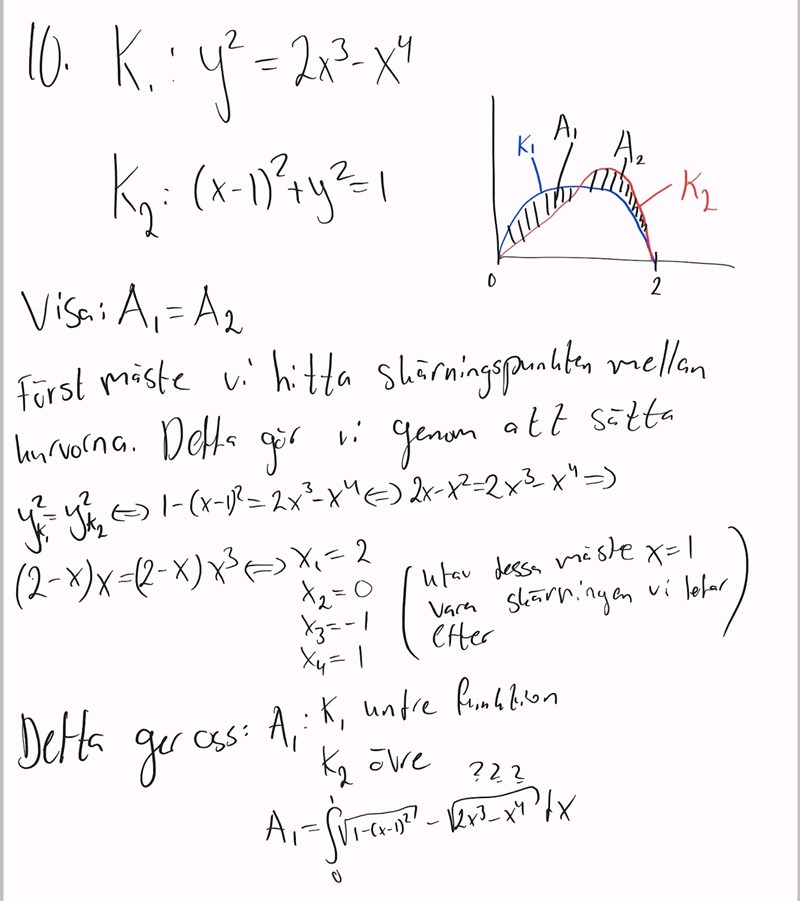 10. K₁: y² = 2x³ - x⁴
K₂: (x-1)² + y² = 1
K₁ A₁ A₂ K₂
0 2
Visa: A₁ = A₂
Först måste vi hitta skärningspunkten mellan
kurvorna. Detta gör vi genom att sätta
y²ₖ₁ = y²ₖ₂ ⇔ 1-(x-1)² = 2x³-x⁴ ⇔ 2x-x² = 2x³-x⁴ ⇒
(2-x)x = (2-x)x³ ⇔ x₁ = 2
x₂ = 0
x₃ = -1
x₄ = 1
(utav dessa måste x=1
vara skärningen vi letar
efter)
Detta ger oss: A₁: K₁ undre funktion
K₂ övre
???
A₁ = ∫₀¹ √(1-(x-1)²) - √(2x³-x⁴) dx